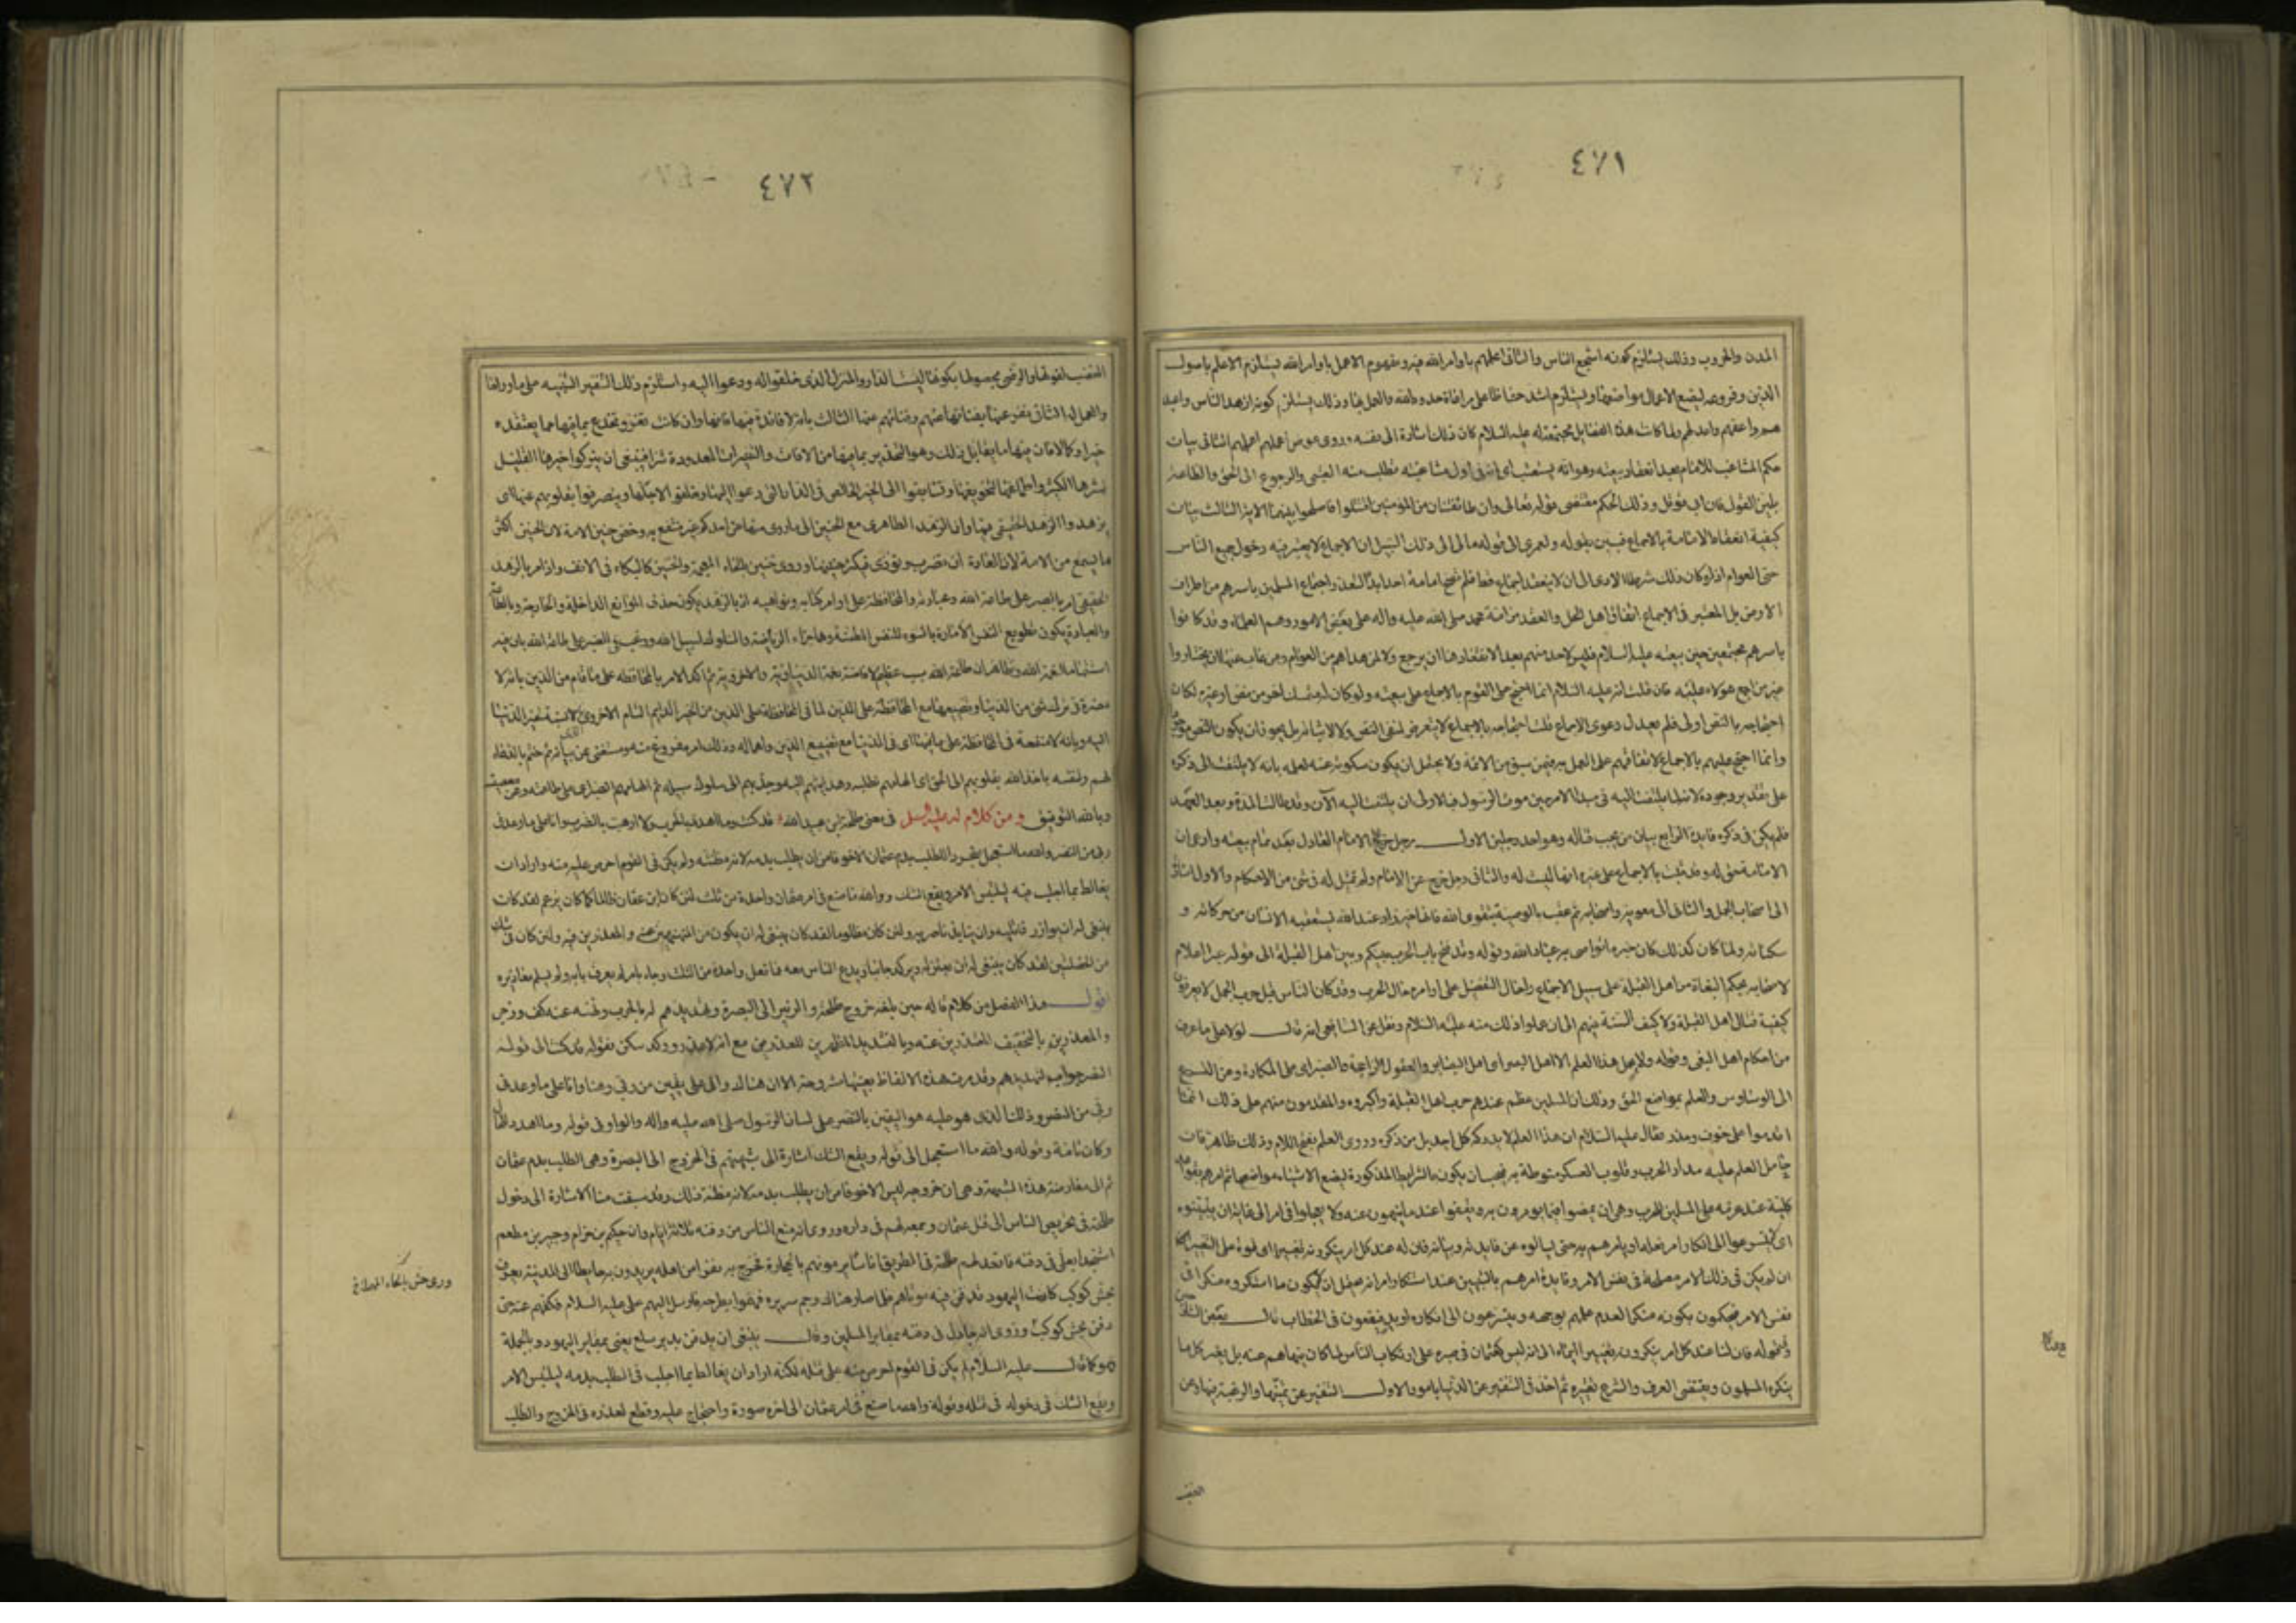 ٤٧١
المدن والحروب وذلك يستلزم كونه اشجع الناس والثانى اعلمهم باوامر الله فيه ومفهوم الاعمل باوامر الله يستلزم الاعلم باصول
الدين وفروعه ليضع الاعمال مواضعها ويستلزم اشد حفاظا على مراعاة حدود الله والعمل بها وذلك يستلزم كونه ازهد الناس واعبد
هم واعفهم واعدلهم ولما كانت هذه الفضايل مجتمعة له عليه السلام كان ذلك اشارة الى نفسه وروى عوض اعملهم اعلمهم الثانى بيان
حكم المشاغب للامام بعد انعقاد بيعته وهو انه يستعتب اى انه فى اول مشاغبته يطلب منه العتبى والرجوع الى الحق والطاعة
بلين القول فان ابى قوتل وذلك الحكم مقتضى قوله تعالى وان طائفتان من المؤمنين اقتتلوا فاصلحوا بينهما الاية الثالث بيان
كيفية انعقاد الامامة بالاجماع فبين بقوله ولعمرى الى قوله ما الى ذلك السبيل ان الاجماع لا يعتبر فيه دخول جميع الناس
حتى العوام اذ لو كان ذلك شرطا لادى الى ان لا ينعقد اجماع قط فلم تصح امامة احد ابدا لتعذر اجتماع المسلمين باسرهم من اطراف
الارض بل المعتبر فى الاجماع اتفاق اهل الحل والعقد من امة محمد صلى الله عليه واله على بعض الامور وهم العلماء وقد كانوا
باسرهم مجتمعين حين بيعته عليه السلام فليس لاحد منهم بعد الانعقاد ها ان يرجع ولا لمن عداهم من العوام ومن غاب عنها ان يختاروا
غير من اجمع هؤلاء عليه فان قلت انه عليه السلام انما احتج على القوم بالاجماع على بيعته ولو كان له متمسك اخر من نص او غيره لكان
احتجاجه بالنص اولى فلم يعدل دعوى الاجماع قلت احتجاجه بالاجماع لا يتعرض لنفى النص ولا لاثباته بل يجوز ان يكون النص موجودا
وانما احتج عليهم بالاجماع لاتفاقهم على العمل به فيمن سبق من الائمة ولا يحتمل ان يكون سكوته عنه لعلمه بانه لا يلتفت الى ذكره
على تقدير وجوده لانه لما لم يلتفت اليه فى مبدا الامر حين موت الرسول فبالاولى ان لا يلتفت اليه الآن وقد طالت المدة وبعد العهد
فلم يكن فى ذكره فايدة الرابع بيان من يجب قتاله وهو احد رجلين الاول رجل خرج على الامام العادل بعد تمام بيعته وادعى ان
الامامة حق له وقد ثبت بالاجماع على غيره انها ليست له والثانى رجل خرج عن الامام ولم تمثل له فى شىء من الاحكام والاول اشارة
الى اصحاب الجمل والثانى الى معوية واصحابه ثم عقب بالوصية بتقوى الله فانها خير زاد عند الله يستعقبه الانسان من حركاته و
سكناته ولما كان كذلك كان خير ما تواصى به عباد الله وقوله وقد فتح باب الحرب بينكم وبين اهل القبلة الى قوله غيرا اعلام
لاصحابه بحكم البغاة من اهل القبلة على سبيل الاجمال واحال التفصيل على اوامره حال الحرب وقد كان الناس قبل حرب الجمل لا يعرفون
كيفية قتال اهل القبلة ولا كيف السنة فيهم الى ان علموا ذلك منه عليه السلام ونقل عن الشافعى انه قال لولا على ما عرف
من احكام اهل البغى وقوله ولا يحمل هذا العلم الا اهل البصر اى اهل البصاير والعقول الراجحة والصبر اى على المكاره وعن التسرع
الى الوساوس والعلم بمواضع الحق وذلك ان المسلمين عظم عندهم حرب اهل القبلة واكبروه والمقدمون منهم على ذلك انما
اقدموا على خوف وحذر فقال عليه السلام ان هذا العلم لا يدركه كل احد بل من ذكره وروى العلم بفتح اللام وذلك ظاهر فان
حامل العلم عليه مدار الحرب وقلوب العسكر منوطة به فيجب ان يكون بالشرايط المذكورة ليضع الاشياء مواضعها ثم امرهم بقواعد
كلية عند عزمه على المسير للحرب وهى ان يمضوا فيما يؤمرون به ويقفوا عند ما ينهون عنه ولا يعجلوا فى امر الى غاية ان يتبينوه
اى لا يتسرعوا الى انكار امر فعله او يامرهم به حتى يسالوه عن فايدته وبيانه فان له عند كل امر ينكرونه تغييرا اى قوة على التغيير
ان لم يكن فى ذلك الامر مصلحة فى نفس الامر وفايدة امرهم بالتبيين عند استنكار امر انه يحتمل ان لا يكون ما استنكروه منكرا فى
نفس الامر فيحكمون بكونه منكرا لعدم علمهم بوجهه ويتسرعون الى انكاره فيقعون فى الخطاب قال بعض الشارحين
وفى قوله فان لنا عند كل امر ينكرونه تغييرا ايماء الى انه ليس كعثمان فى صبره على ارتكاب الناس لما كان ينهاهم عنه بل يغير كل ما
ينكره المسلمون ويقتضى العرف والشرع تغييره ثم اخذ فى التنفير عن الدنيا بامور الاول التنفير عن تمنيها والرغبة فيها وعن
الغضب
٤٧٢
الغضب لفوتها والرضى بحصولها بكونها ليست الدار والمنزل الذى خلقوا له ودعوا اليه واستلزم ذلك التنفير التنبيه على ما وراءها
والعمل له الثانى نفر عنها بفنائها عنهم وفنائهم عنها الثالث بانه لا فائدة فيها فانها وان كانت تغر وتخدع بما فيها مما يعتقد
خيرا وكمالا فان فيها ما يقابل ذلك وهو التحذير بما فيها من الافات والتغيرات المعدودة شرا فينبغى ان يتركوا خيرها القليل
لشرها الكثير واطماعها لتخويفها وتسابقوا الى الخير الخالص فى الدار التى دعوا اليها وخلقوا لاجلها وينصرفوا بقلوبهم عنها اى
يزهدوا الزهد الحقيقى فيها وان الزهد الظاهرى مع الحنين الى ما زوى منها عن احدكم غير منتفع به وخص حنين الامة لان الحنين اكثر
ما يسمع من الامة لان العادة ان تضرب وتؤذى فيكثر حنينها وروى خنين بالخاء المعجمة والخنين كالبكاء فى الانف واذ امر بالزهد
الحقيقى امر بالصبر على طاعة الله وعبادته والمحافظة على اوامر كتابه ونواهيه اذ بالزهد يكون حذف الموانع الداخلة والخارجة وبالطاعة
والعبادة يكون تطويع النفس الامارة بالسوء للنفس المطمئنة وهما جزاء الرياضة والسلوك لسبيل الله ورغب فى الصبر على طاعة الله بان فيه
استتماما لنعمة الله وظاهر ان طاعة الله سبب عظيم لافاضة نعمه الدنياوية والاخروية ثم اكد الامر بالمحافظة على ما قام من الدين بانه لا
مضرة فى ترك شىء من الدنيا وتضييعها مع المحافظة على الدين لما فى المحافظة على الدين من الخير الدايم التام الاخروى الذى لا نسبة لخير الدنيا
اليه وبانه لا منفعة فى المحافظة على ما فيها اى فى الدنيا مع تضييع الدين واهماله وذلك امر مفروغ منه ومستغنى عن بيانه ثم ختم بالدعاء
لهم ولنفسه باخذ الله بقلوبهم الى الحق اى الهامهم لطلبه وهدايتهم اليه وجذبهم الى سلوك سبيله ثم الهامهم الصبر اى على طاعته وعن معصيته
وبالله التوفيق ومن كلام له عليه السلم فى معنى طلحة بن عبيد الله قد كنت وما اهدد بالحرب ولا ارهب بالضرب وانا على ما وعدنى
ربى من النصر والله ما استعجل متجردا للطلب بدم عثمان الا خوفا من ان يطالب بدمه لانه مظنته ولم يكن فى القوم احرص عليه منه واراد ان
يغالط بما اجلب فيه ليلبس الامر ويقع الشك ووالله ما صنع فى امر عثمان واحدة من ثلث لئن كان ابن عفان ظالما كما كان يزعم لقد كان
ينبغى له ان يوازر قاتليه وان ينابذ ناصريه ولئن كان مظلوما لقد كان ينبغى له ان يكون من المنهنهين عنه والمعذرين فيه ولئن كان فى شك
من الخصلتين لقد كان ينبغى له ان يعتزله ويركد جانبا ويدع الناس معه فما فعل واحدة من الثلث وجاء بامر لم يعرف بابه ولم يسلم معاذيره
اقول هذا الفصل من كلام قاله حين بلغه خروج طلحة والزبير الى البصرة وتهديدهم له بالحرب ونهنه عنه كف وزجر
والمعذرين بالتخفيف المعتذرين عنه وبالتشديد المظهرين للعذر مع انه لا عذر وركد سكن فقوله قد كنت الى قوله
النصر جواب لتهديدهم وقد مرت هذه الالفاظ بعينها مشروحة الا ان هناك وانى على يقين من ربى وهنا وانا على ما وعدنى
ربى من النصر وذلك الذى هو عليه هو اليقين بالنصر على لسان الرسول صلى الله عليه واله والواو فى قوله وما اهدد للحال
وكان تامة وقوله والله ما استعجل الى قوله ويقع الشك اشارة الى شبهتهم فى الخروج الى البصرة وهى الطلب بدم عثمان
ثم الى معارضة هذه الشبهة وهى ان خروجه ليس الا خوفا من ان يطلب بدمه لانه مظنة ذلك وقد سبقت منا الاشارة الى دخول
طلحة فى تحريض الناس الى قتل عثمان وجمعه لهم فى داره وروى انه منع الناس من دفنه ثلاثة ايام وان حكيم بن حزام وجبير بن مطعم
استنجدا بعلى فى دفنه فاقعد لهم طلحة فى الطريق اناسا يرمونهم بالحجارة فخرج به نفر من اهله يريدون به حايطا فى المدينة يعرف
بحش كوكب كانت اليهود تدفن فيه موتاهم فلما صار هناك رجم سريره فهموا بطرحه فارسل اليهم على عليه السلام فكفهم عنه حتى
دفن بحش كوكب وروى انه جادل فى دفنه بمقابر المسلمين وقال ينبغى ان يدفن بدير سلع يعنى بمقابر اليهود وبالجملة
فهو كما قال عليه السلام لم يكن فى القوم احرص منه على قتله لكنه اراد ان يغالط بما اجلب فى الطلب بدمه ليلبس الامر
ويقع الشك فى دخوله فى قتله وقوله والله ما صنع فى امر عثمان الى اخره صورة واحتجاج عليه وقطع لعذره فى الخروج والطلب
وروى حش بالحاء المهملة